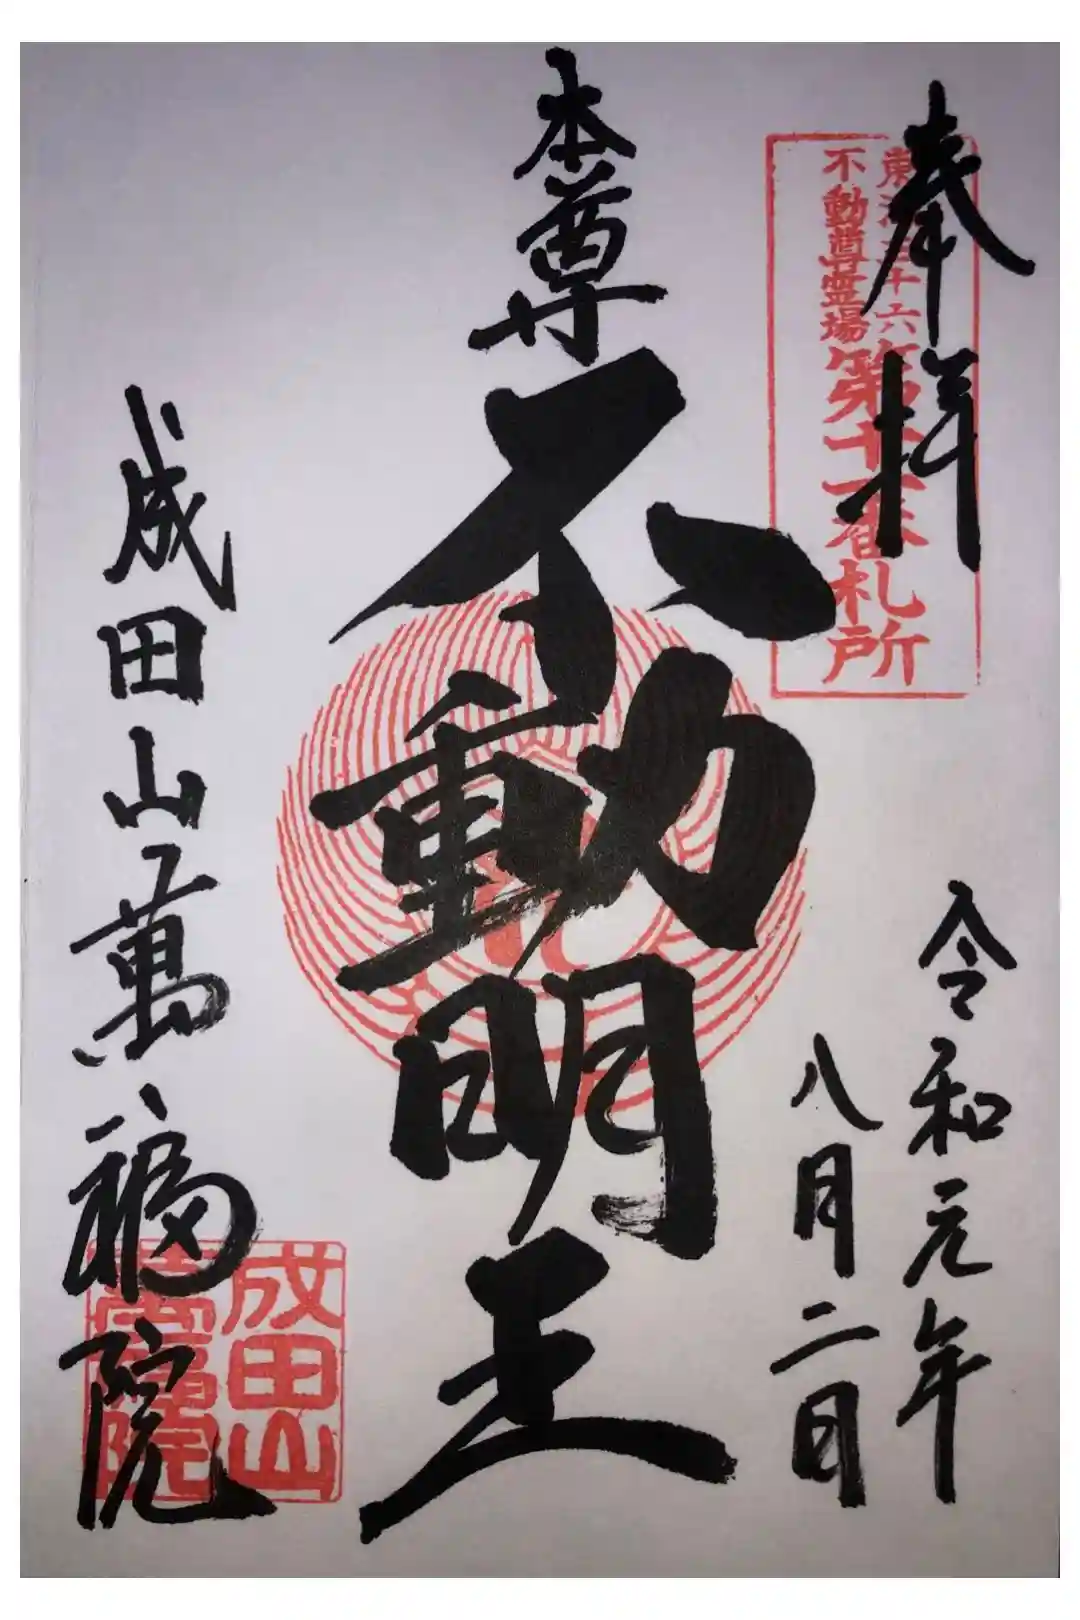 奉拝
東海三十六
不動尊霊場
第十一番札所
令和元年
八月二日
本尊
不動明王
成田山萬福院
成田山
萬福院